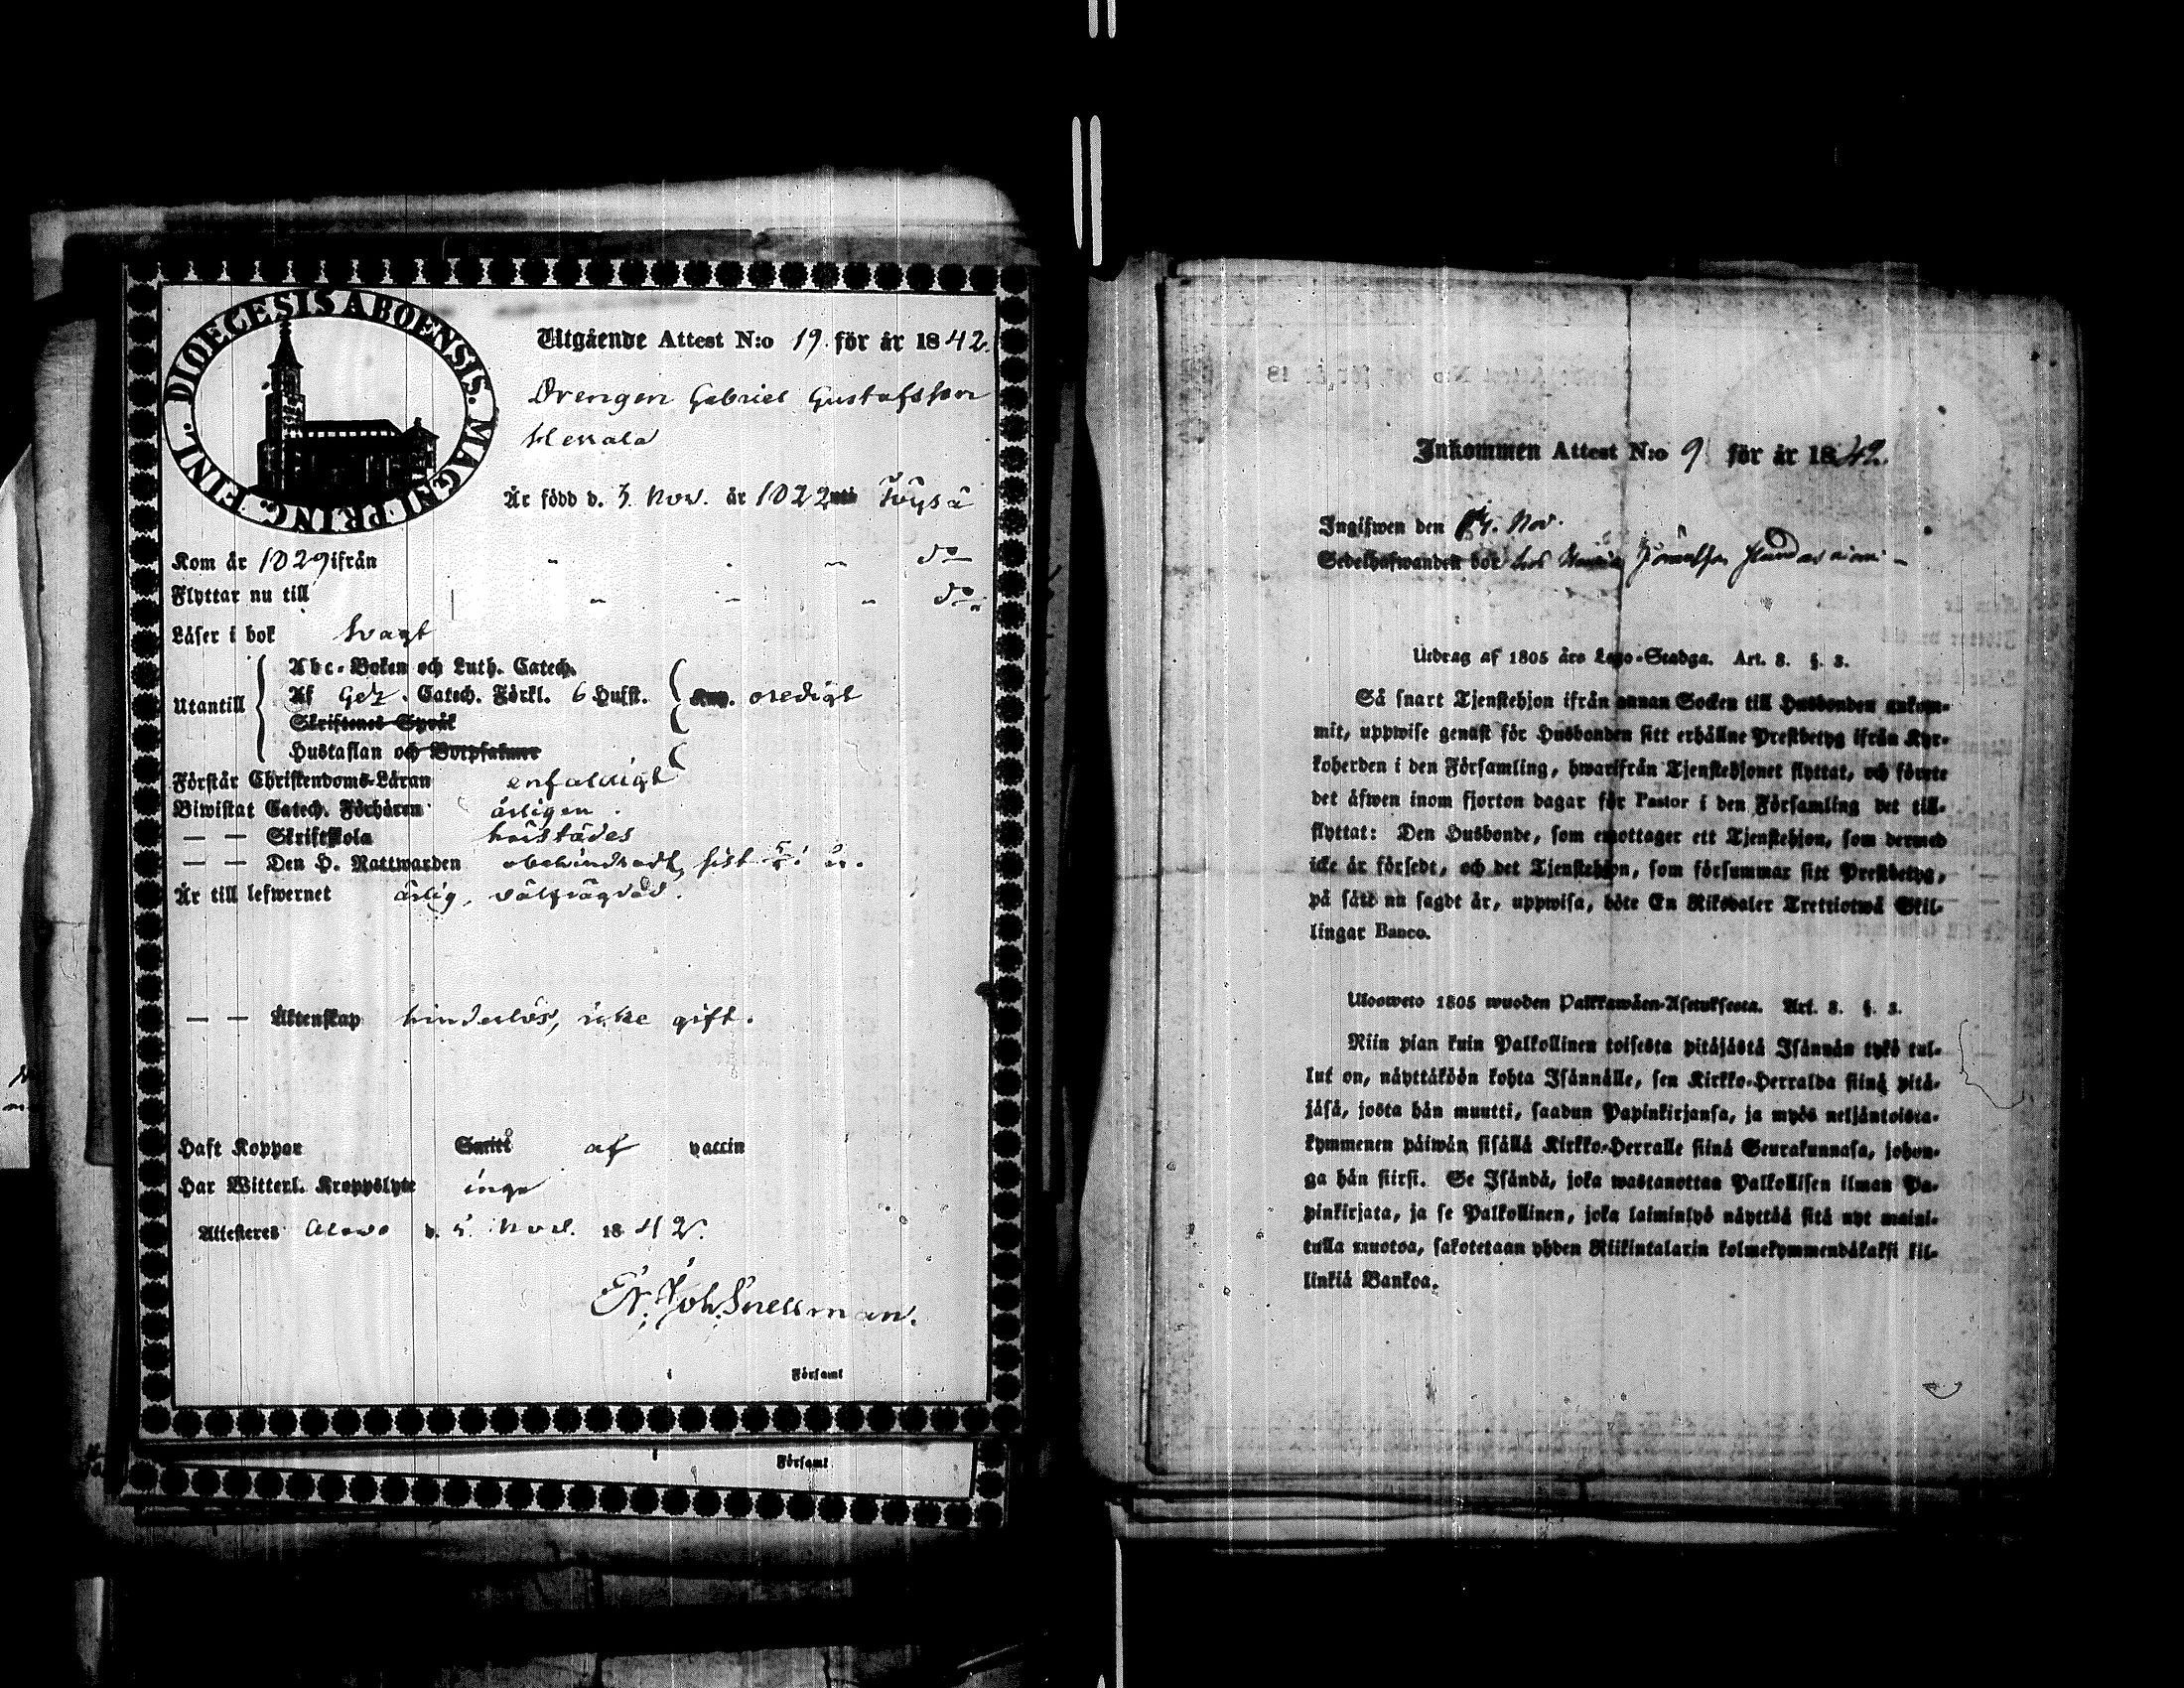 DIOECESIS ABOENSIS. MAGNI PRINC. FINL.
Utgående Attest N:o 19. för år 1842.
Drengen Gabriel Gustafsson
Är född d. 3. Nov. år 1822 uti Töysä
Kom år 1829 ifrån " " " do
Flyttar nu till " " " do
Läser i bok svagt
Utantill
Abc-Boken och Luth. Catech.
Af Getz. Catech. Förkl. 6 Hufst. oredigt
Skriftenes Språk
Hustaflan och Botpsalmer
Förstår Christendoms-Läran enfaldigt
Biwistat Catech. Förhören årligen.
— — Skriftskola härstädes
— — Den H. Nattwarden obehindradt, sist i år.
Är till lefwernet ärlig, välfrägdad.
— — Äktenskap hinderlös, icke gift.
Haft Koppor af vaccin
Har Witterl. Kroppslyte inga
Attesteres Alavo d. 5. Nov. 1842.
Er. Joh. Snellman.
i Församl
i Församl
Inkommen Attest N:o 9 för år 1842.
Ingifwen den Nov.
Sedelhafwanden bor hos
Utdrag af 1805 års Lego-Stadga. Art. 8. §. 3.
Så snart Tjenstehjon ifrån annan Socken till Husbonden ankom-
mit, uppwise genast för Husbonden sitt erhållne Prestbetyg ifrån Kyr-
koherden i den Församling, hwarifrån Tjenstehjonet flyttat, och förete
det äfwen inom fjorton dagar för Pastor i den Församling det till-
flyttat: Den Husbonde, som emottager ett Tjenstehjon, som dermed
icke är försedt, och det Tjenstehjon, som försummar sitt Prestbetyg,
på sätt nu sagdt är, uppwisa, böte En Riksdaler Trettiotwå Skil-
lingar Banco.
Ulosweto 1805 wuoden Palkkawäen-Asetuksesta. Art. 8. §. 3.
Niin pian kuin Palkollinen toisesta pitäjästä Isännän tykö tul-
lut on, näyttäköön kohta Isännälle, sen Kirkko-Herralda siinä pitä-
jäsä, josta hän muutti, saadun Papinkirjansa, ja myös neljäntoista-
kymmenen päiwän sisällä Kirkko-Herralle siinä Seurakunnasa, johon-
ga hän siirsi. Se Isändä, joka wastanottaa Palkollisen ilman Pa-
pinkirjata, ja se Palkollinen, joka laiminlyö näyttää sitä nyt maini-
tulla muotoa, sakotetaan yhden Riikintalarin kolmekymmendäkaksi kil-
linkiä Bankoa.